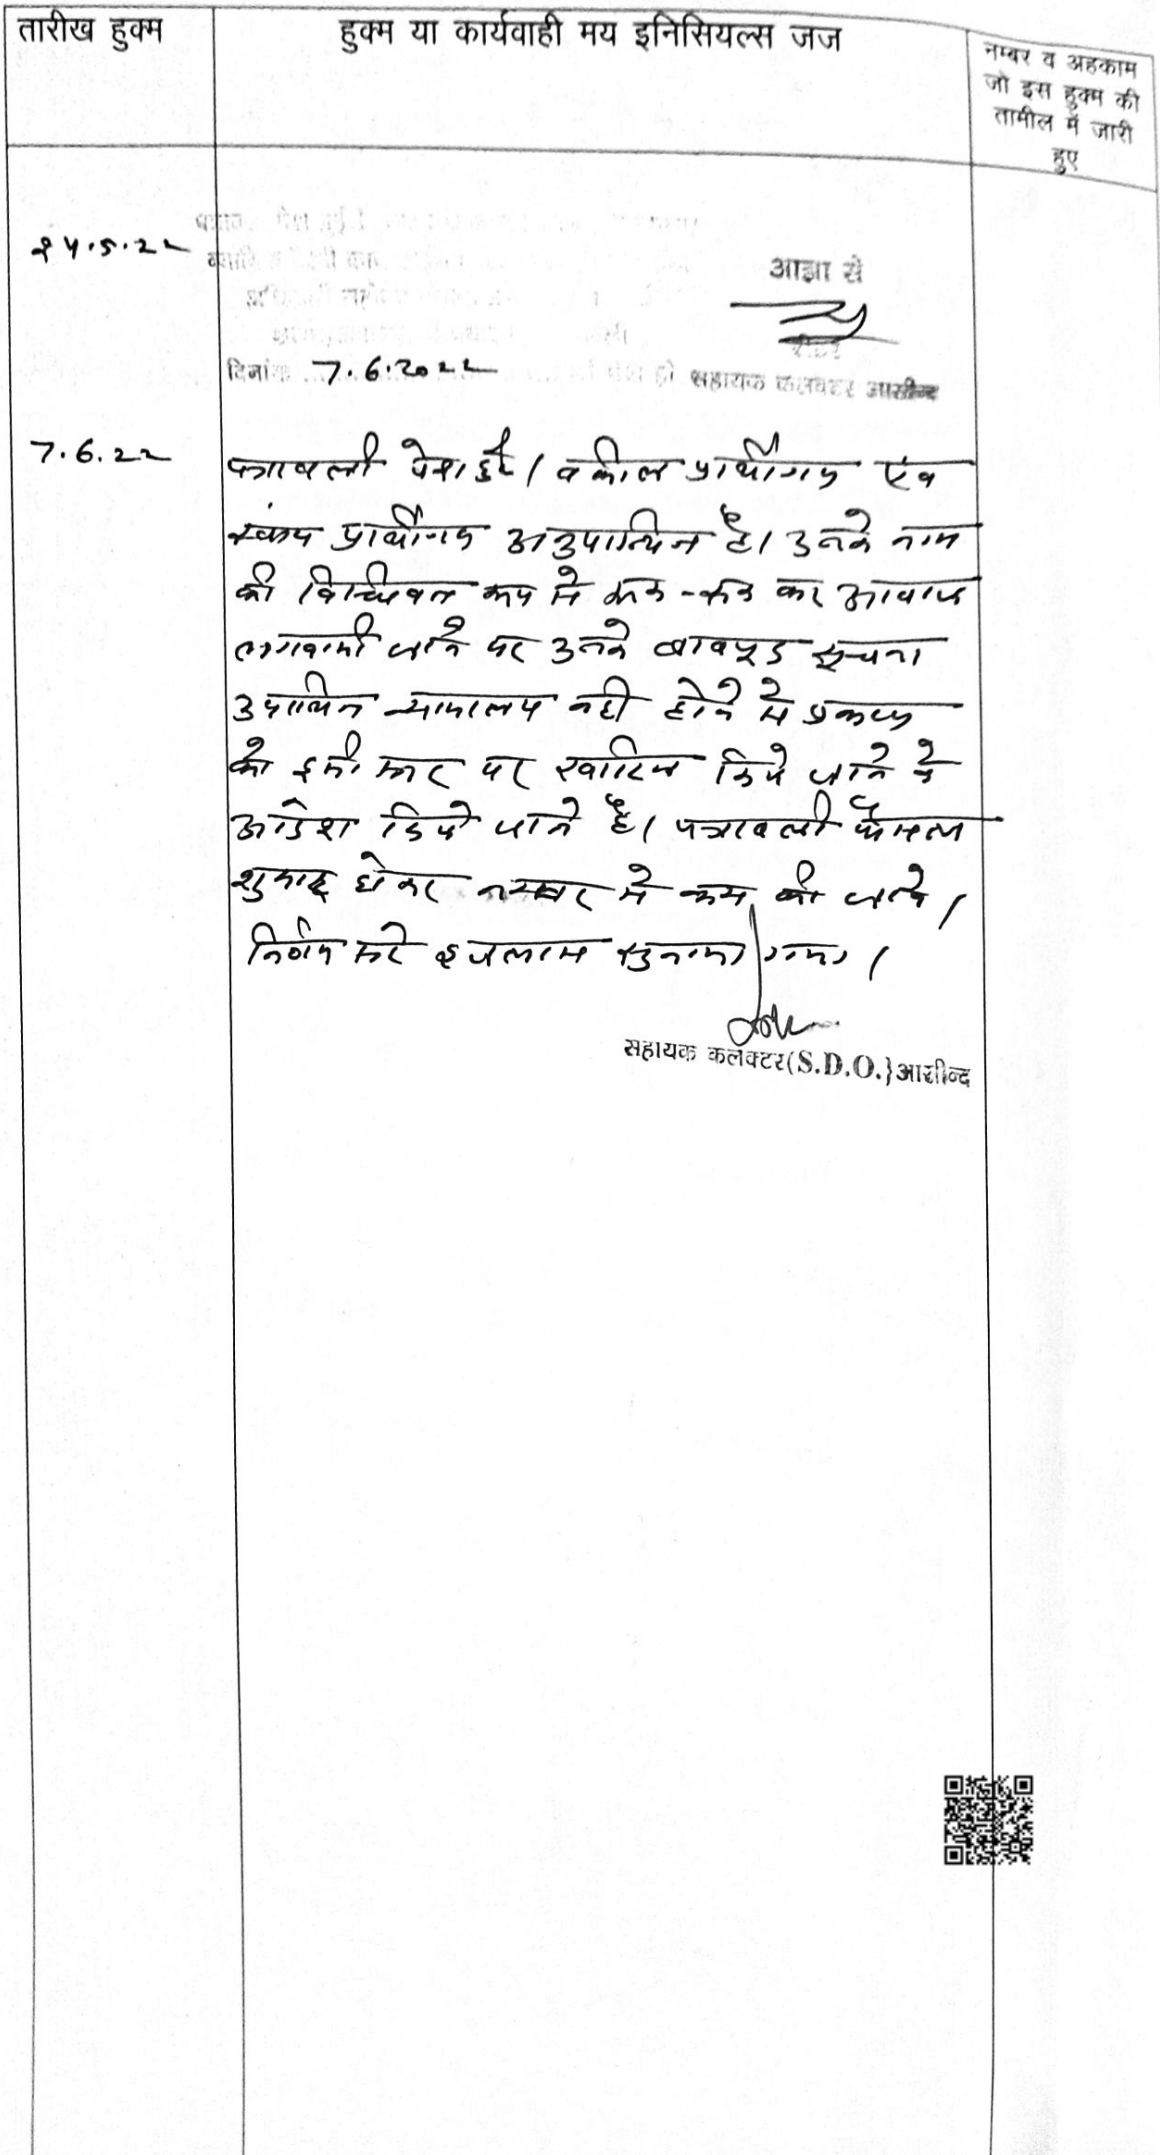 तारीख हुक्म
हुक्म या कार्यवाही मय इनिसियल्स जज
नम्बर व अहकाम
जो इस हुक्म की
तामील में जारी
हुए
24.5.22
आज्ञा से
रीडर
दिनांक 7.6.2022 सहायक कलक्टर आसीन्द
7.6.22
पत्रावली पेश हुई। वकील प्रार्थीगण एंव
स्वंय प्रार्थीगण अनुपस्थित है। उनके नाम
की विधिवत रूप से रूक-रूक कर आवाज
लगवायी जाने पर उनके बावजूद सूचना
उपस्थित न्यायालय नही होने से प्रकरण
को इसी स्तर पर खारिज किये जाने के
आदेश दिये जाते है। पत्रावली फैसल
शुमार होकर नम्बर से कम की जावे।
निर्णय सरे इजलास सुनाया गया।
सहायक कलेक्टर(S.D.O.)आसीन्द